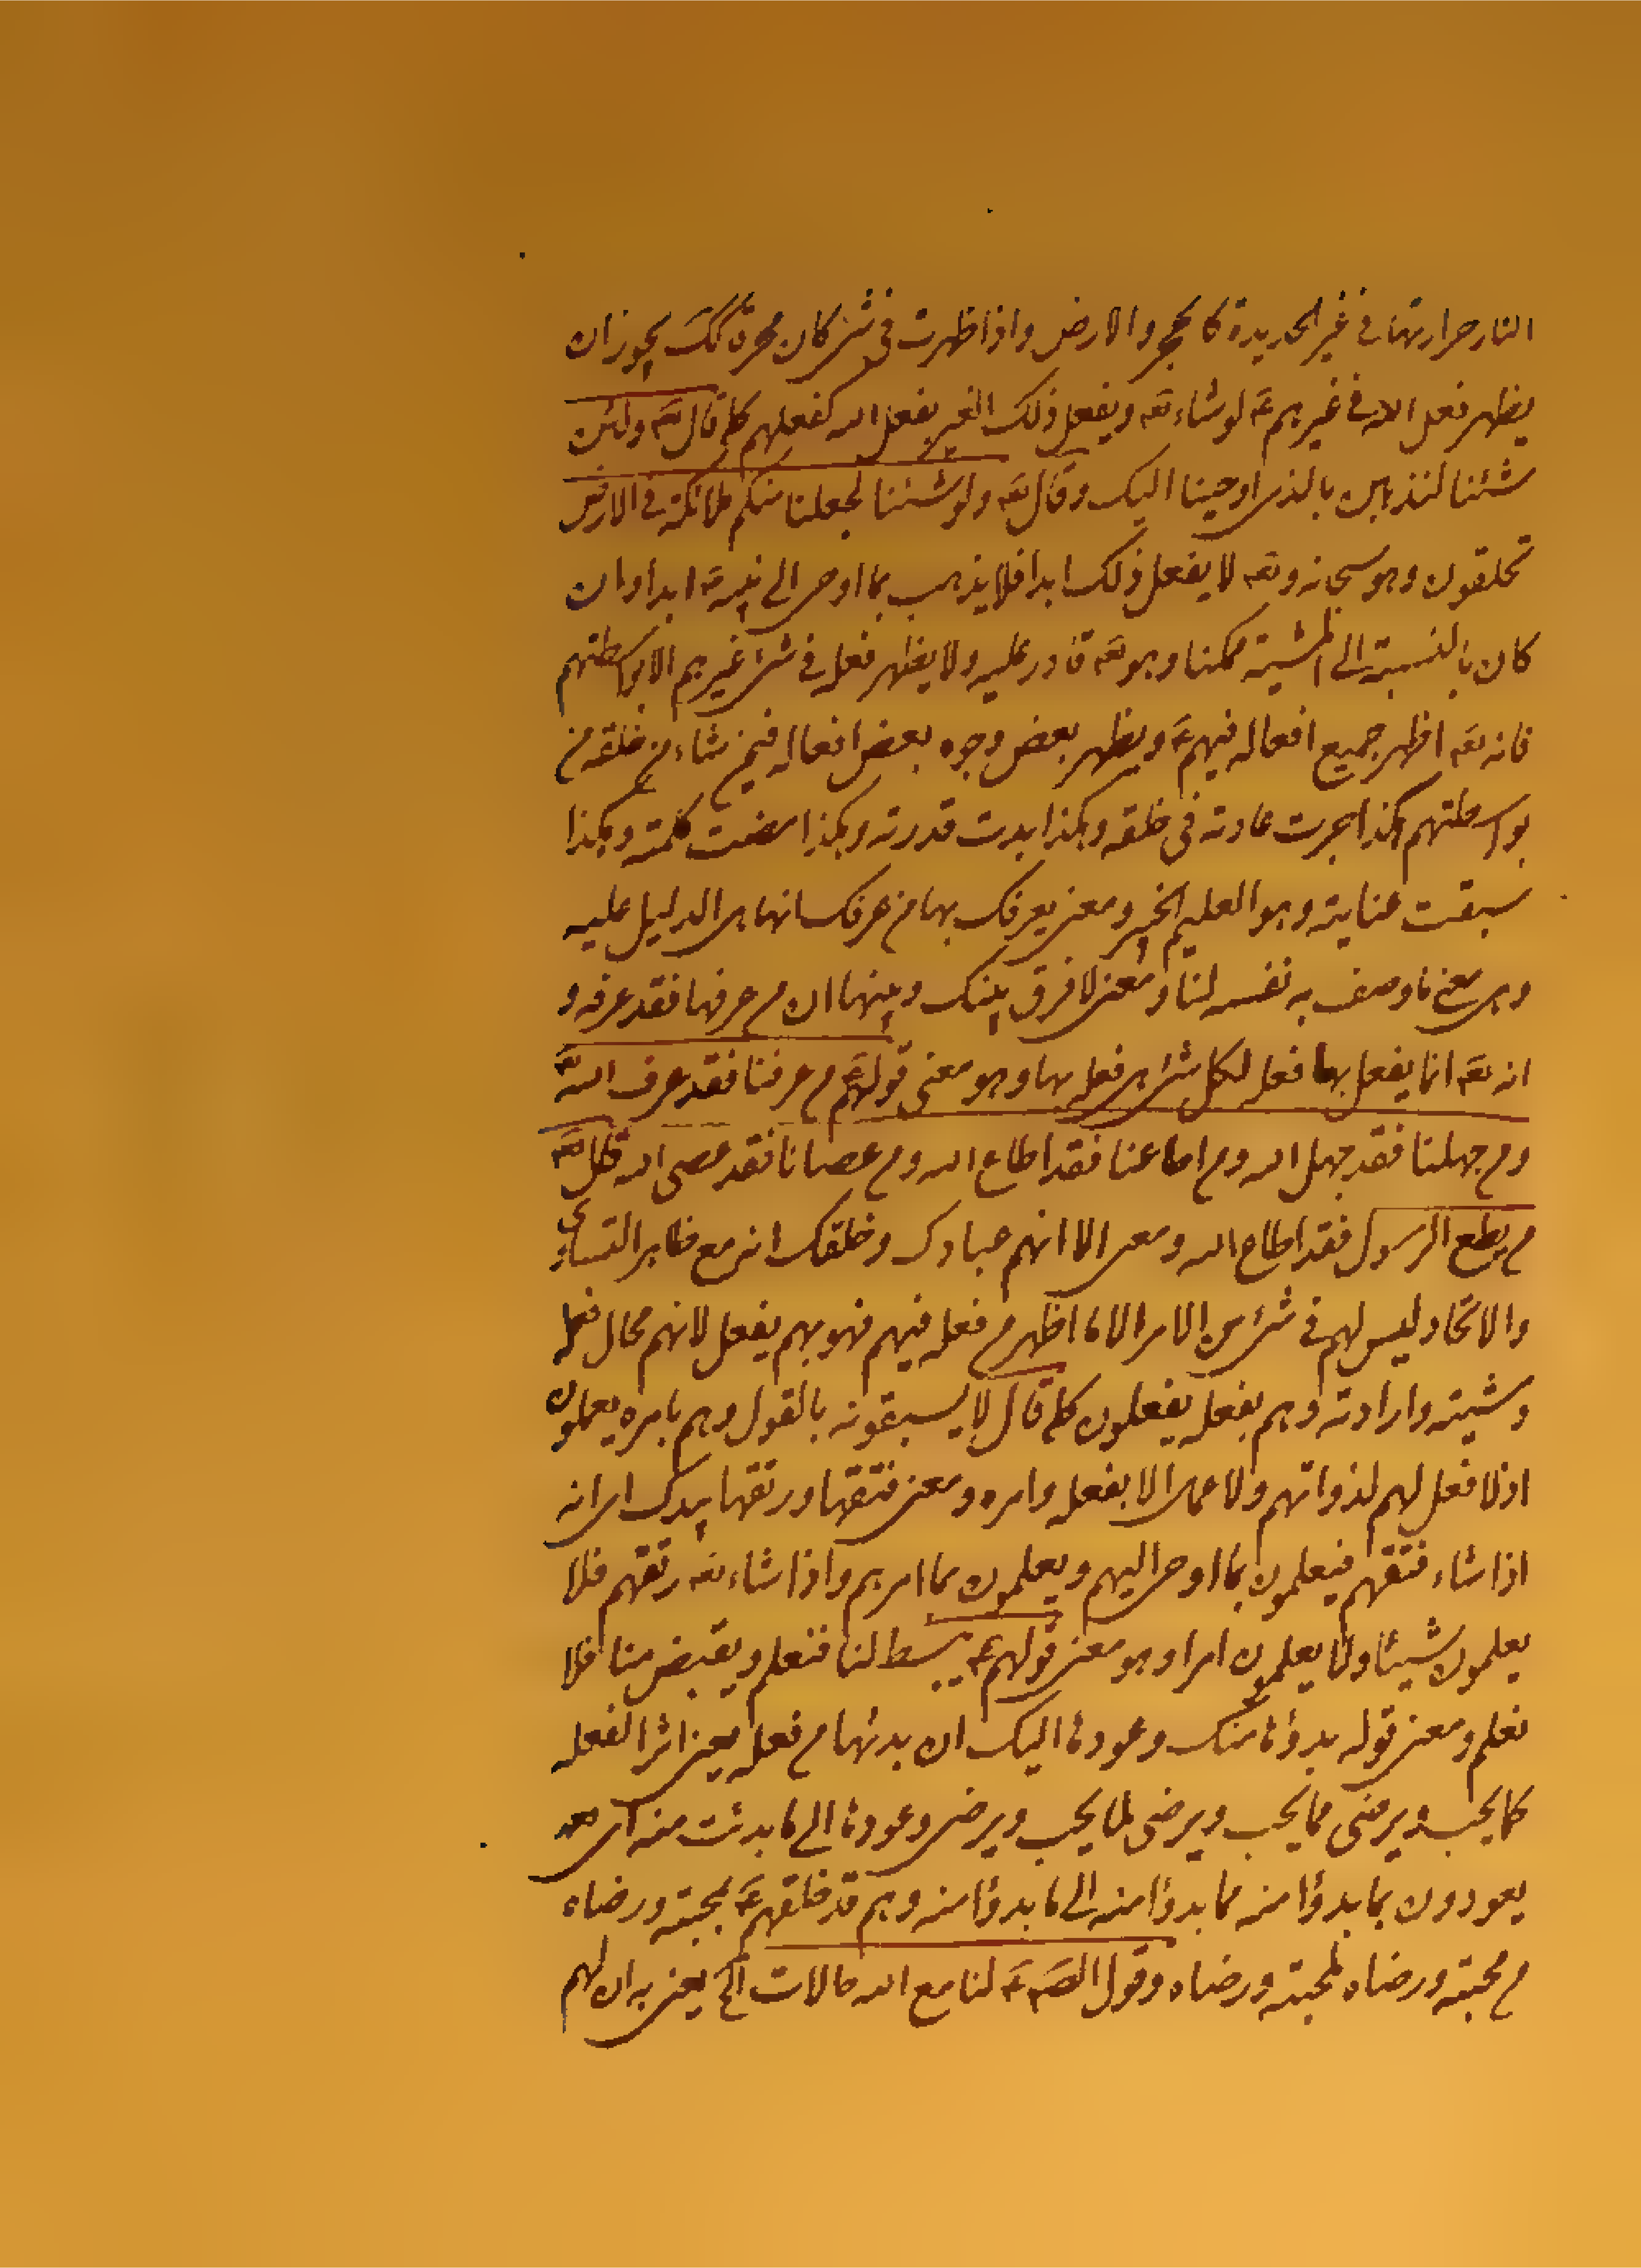 النار حرارتها في غير الحديدة كالحجر والارض واذا ظهرت في شئ كان محرقا كك يجوز ان
يظهر فعل الله في غيرهم ع لو شاء تع ويفعل ذلك الغير بفعل الله كفعلهم كما قال تع ولئن
شئنا لنذهبن بالذي اوحينا اليك وقال تع ولو شئنا لجعلنا منكم ملائكة في الارض
تخلقون وهو سبحانه وتع لا يفعل ذلك ابدا فلا يذهب بما اوحى الى نبيه ابدا وان
كان بالنسبة الى المشية ممكنا وهو تع قادر عليه ولا يظهر فعله في شئ غيرهم الا بواسطتهم
فانه تع اظهر جميع افعاله فيهم ع ويظهر بعض وجوه بعض افعاله فيمن شاء من خلقه من
بواسطتهم هكذا جرت عادته في خلقه وهكذا بدت قدرته وهكذا مضت كلمته وهكذا
سبقت عنايته وهو العليم الخبير ومعنى يعرفك بها من عرفك انها هى الدليل عليه
وهى معنى ما وصف به نفسه لنا ومعنى لا فرق بينك وبينها ان من عرفها فقد عرفه و
انه تع انما يفعل بها فعل لكل شئ هى فعله بها وهو معنى قولهم ع من عرفنا فقد عرف الله
ومن جهلنا فقد جهل الله ومن اطاعنا فقد اطاع الله ومن عصانا فقد عصى الله قال تع
من يطع الرسول فقد اطاع الله ومعنى الا انهم عبادك وخلقك انه مع ظاهر التساوي
والاتحاد ليس لهم في شئ من الامر الا ما اظهر من فعله فيهم فهو بهم يفعل لانهم محال فعله
ومشيته وارادته وهم بفعله يفعلون كما قال لا يسبقونه بالقول وهم بامره يعملون
اذ لا فعل لهم لذواتهم ولا عمل الا بفعله وامره ومعنى فتقها ورتقها بيدك اى انه
اذا شاء فتقهم فيعلمون بما اوحى اليهم ويعملون بما امرهم واذا شاء تع رتقهم فلا
يعلمون شيئا ولا يعلمون امرا وهو معنى قولهم ع يبسط لنا فنعلم ويقبض منا فلا
نعلم ومعنى قوله بدؤها منك وعودها اليك ان بدئها من فعله يعنى اثرا لفعله
كما يحب ويرضى مما يحب ويرضى لما يحب ويرضى وعودها الى ما بدئت منه اى
يعودون بما بدؤا منه مما بدؤا منه الى ما بدؤا منه وهم قد خلقهم ع بمحبته ورضاه
من محبته ورضاه لمحبته ورضاه وقول الص ع لنا مع الله حالات الخ يعنى به ان لهم